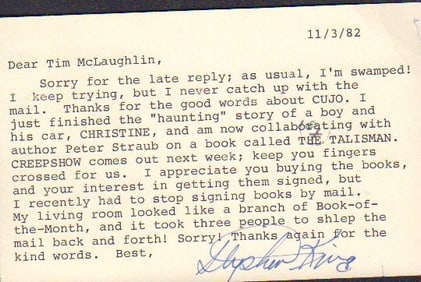 11/3/82
Dear Tim McLaughlin,
Sorry for the late reply; as usual, I'm swamped!
I keep trying, but I never catch up with the
mail. Thanks for the good words about CUJO. I
just finished the "haunting" story of a boy and
his car, CHRISTINE, and am now collaborating with
author Peter Straub on a book called THE TALISMAN.
CREEPSHOW comes out next week; keep you fingers
crossed for us. I appreciate you buying the books,
and your interest in getting them signed, but
I recently had to stop signing books by mail.
My living room looked like a branch of Book-of-
the-Month, and it took three people to shlep the
mail back and forth! Sorry! Thanks again for the
kind words. Best,
Stephen King